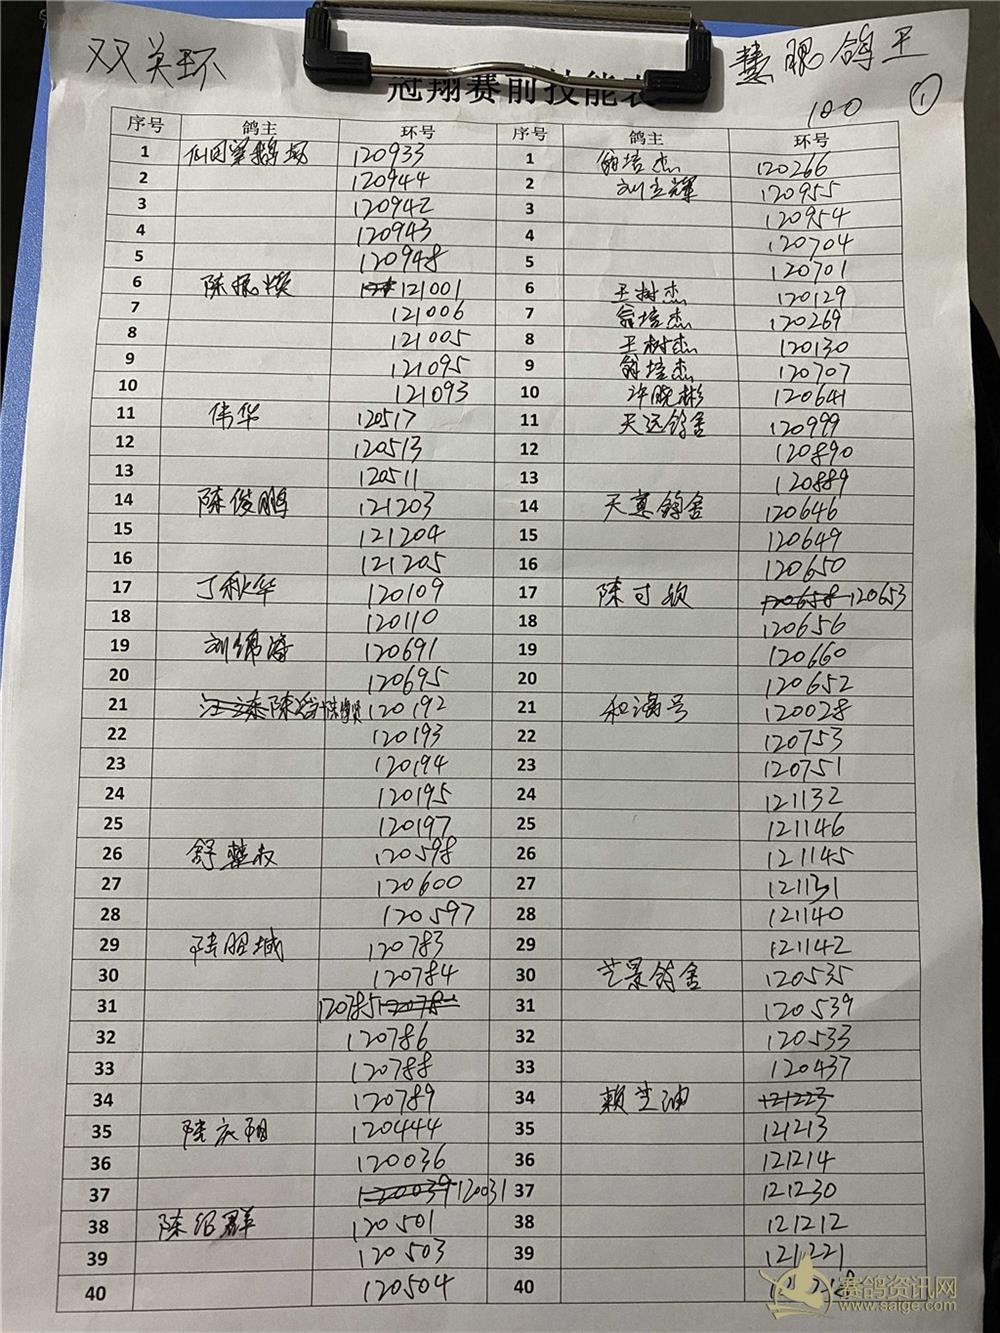 双关环
慧眼鸽王
100 ①
冠翔赛前技能表
序号 鸽主 环号 序号 鸽主 环号
1 120933 1 翁培杰 120266
2 120944 2 刘立辉 120955
3 120942 3 120954
4 120943 4 120704
5 120948 5 120701
6 陈振 121001 6 王树杰 120129
7 121006 7 翁培杰 120269
8 121005 8 王树杰 120130
9 121095 9 翁培杰 120707
10 121093 10 许晓彬 120641
11 伟华 120517 11 天远鸽舍 120999
12 120513 12 120890
13 120511 13 120889
14 陈俊鹏 121203 14 天真鸽舍 120646
15 121204 15 120649
16 121205 16 120650
17 丁秋华 120109 17 陈可欣 120658 120653
18 120110 18 120656
19 刘绵海 120691 19 120660
20 120695 20 120652
21 120192 21 和鸿号 120028
22 120193 22 120753
23 120194 23 120751
24 120195 24 121132
25 120197 25 121146
26 舒整权 120598 26 121145
27 120600 27 121131
28 120597 28 121140
29 陆胆城 120783 29 121142
30 120784 30 艺景鸽舍 120535
31 120785 31 120539
32 120786 32 120533
33 120788 33 120437
34 120789 34 赖芝迪 121223
35 陆庆阳 120444 35 121213
36 120036 36 121214
37 120039 120031 37 121230
38 陈绍群 120501 38 121212
39 120503 39 121221
40 120504 40
赛鸽资讯网
www.saige.com